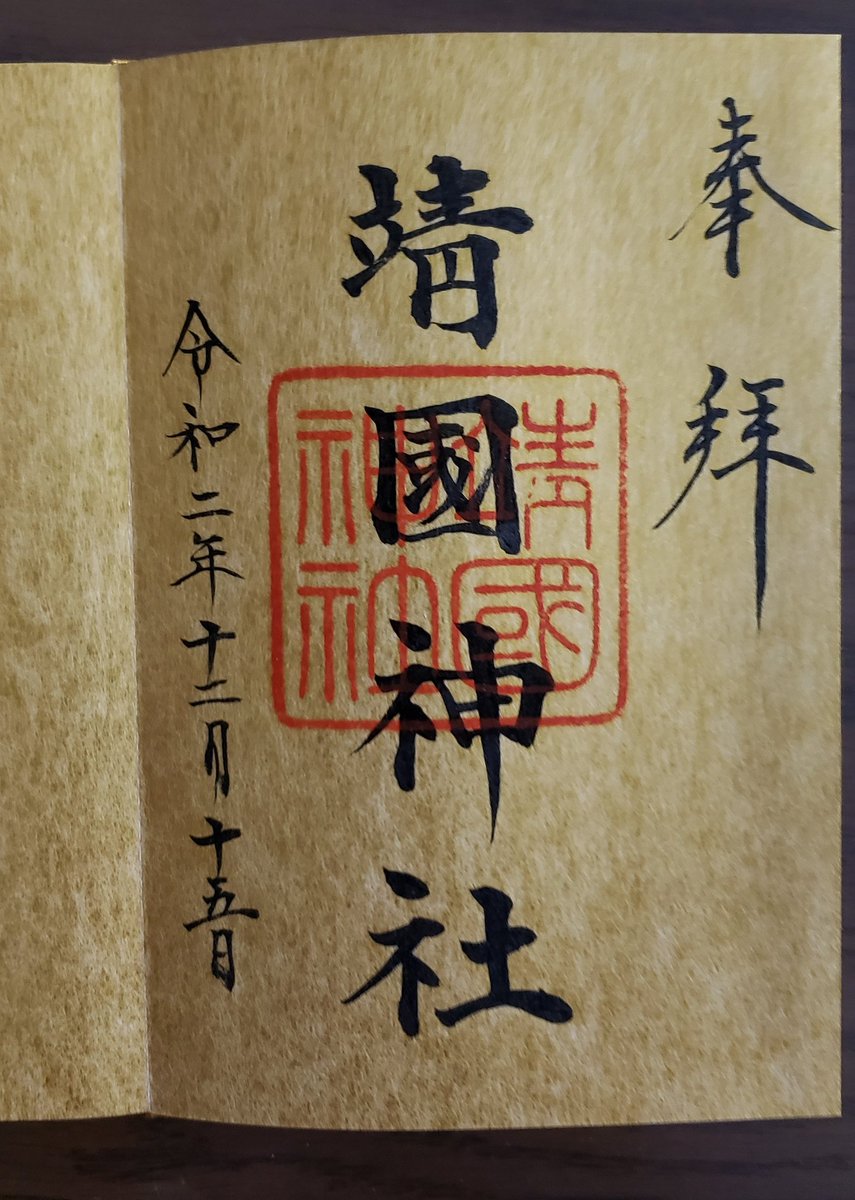 奉拜
靖國神社
靖國
神社
令和二年十二月十五日